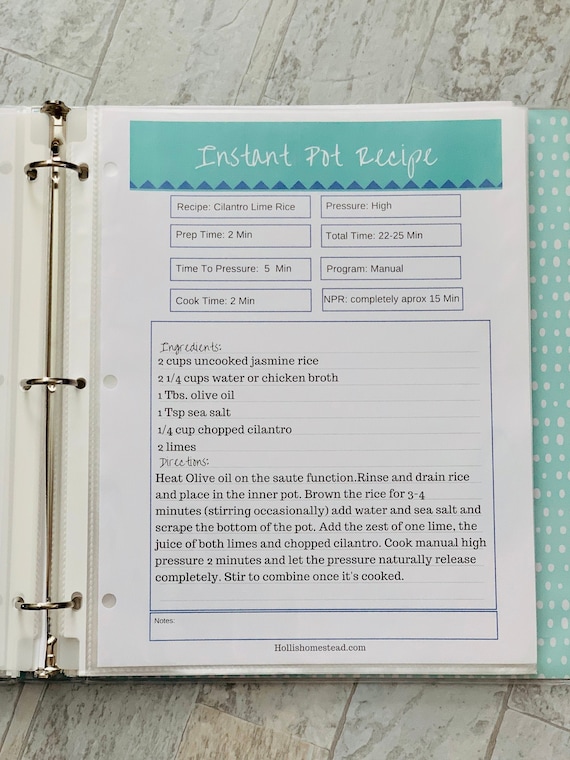 Instant Pot Recipe
Recipe: Cilantro Lime Rice
Pressure: High
Prep Time: 2 Min
Total Time: 22-25 Min
Time To Pressure: 5 Min
Program: Manual
Cook Time: 2 Min
NPR: completely aprox 15 Min
Ingredients:
2 cups uncooked jasmine rice
2 1/4 cups water or chicken broth
1 Tbs. olive oil
1 Tsp sea salt
1/4 cup chopped cilantro
2 limes
Directions:
Heat Olive oil on the saute function.Rinse and drain rice
and place in the inner pot. Brown the rice for 3-4
minutes (stirring occasionally) add water and sea salt and
scrape the bottom of the pot. Add the zest of one lime, the
juice of both limes and chopped cilantro. Cook manual high
pressure 2 minutes and let the pressure naturally release
completely. Stir to combine once it's cooked.
Notes:
Hollishomestead.com